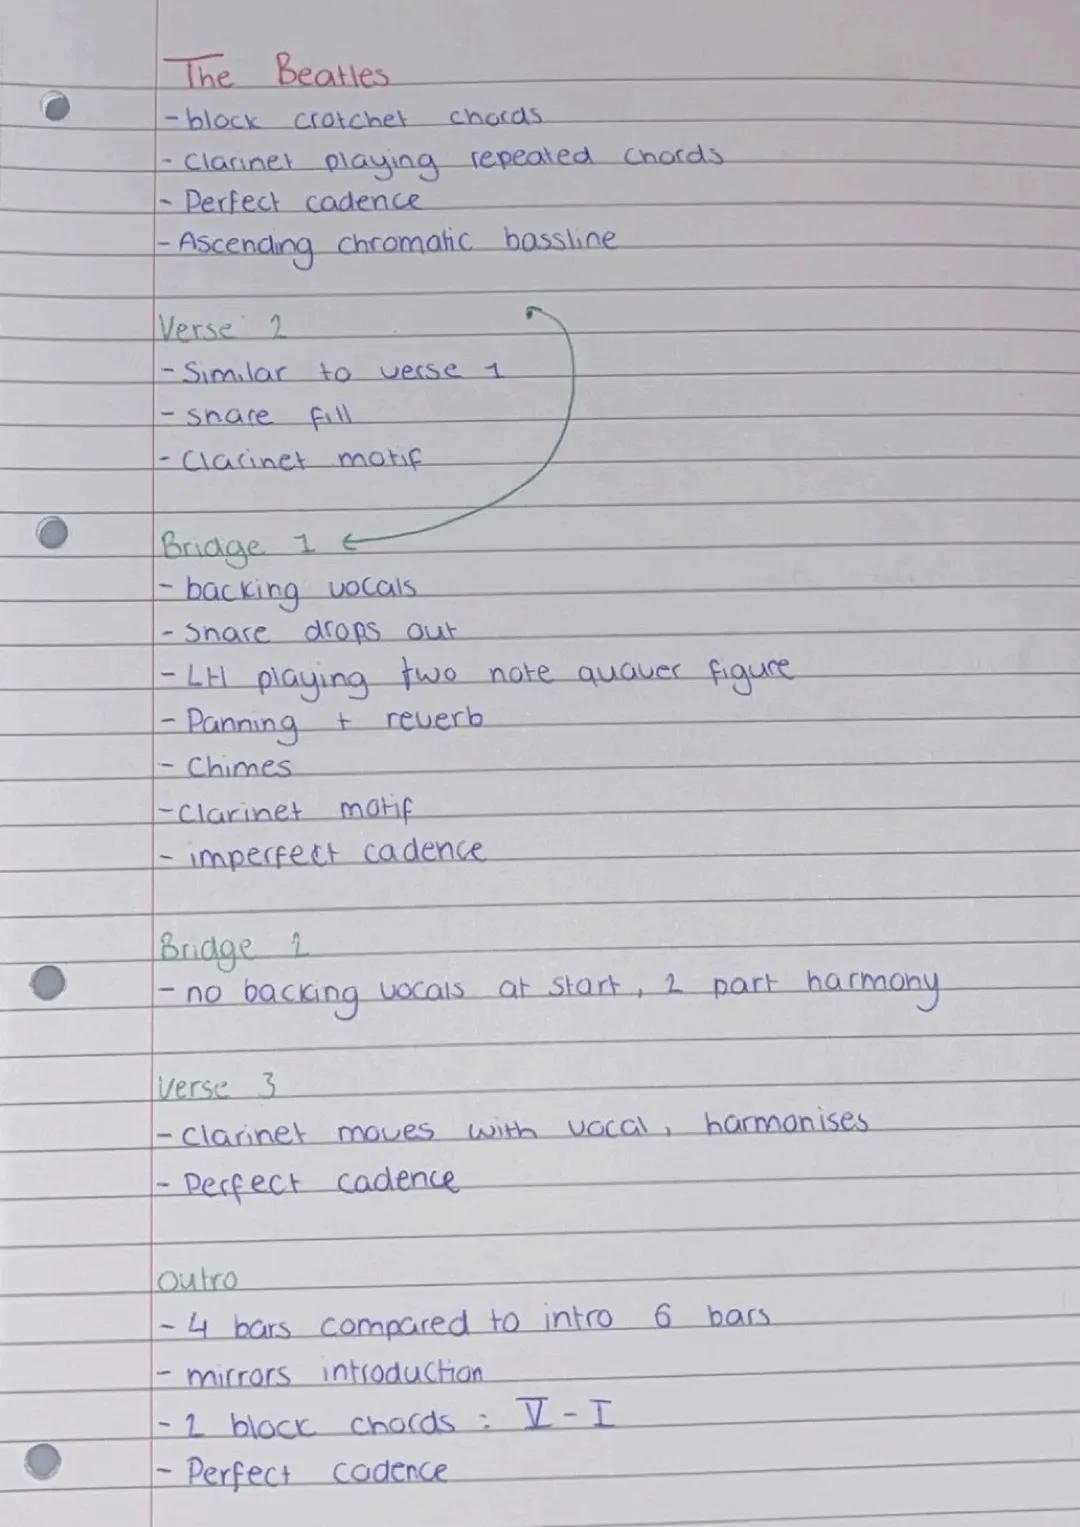 The Beatles
- block crotchet chords
- Clarinet playing repeated chords
- Perfect cadence
- Ascending chromatic bassline
Verse 2
- Similar to verse 1
- snare fill
- Clarinet motif
Bridge 1
- backing vocals
- Snare drops out
- LH playing two note quaver figure
- Panning + reverb
- Chimes
- Clarinet motif
- imperfect cadence
Bridge 2
- no backing vocals at start, 2 part harmony
Verse 3
- Clarinet moves with vocal, harmonises
- Perfect cadence
Outro
- 4 bars compared to intro 6 bars
- mirrors introduction
- 2 block chords : V - I
- Perfect cadence